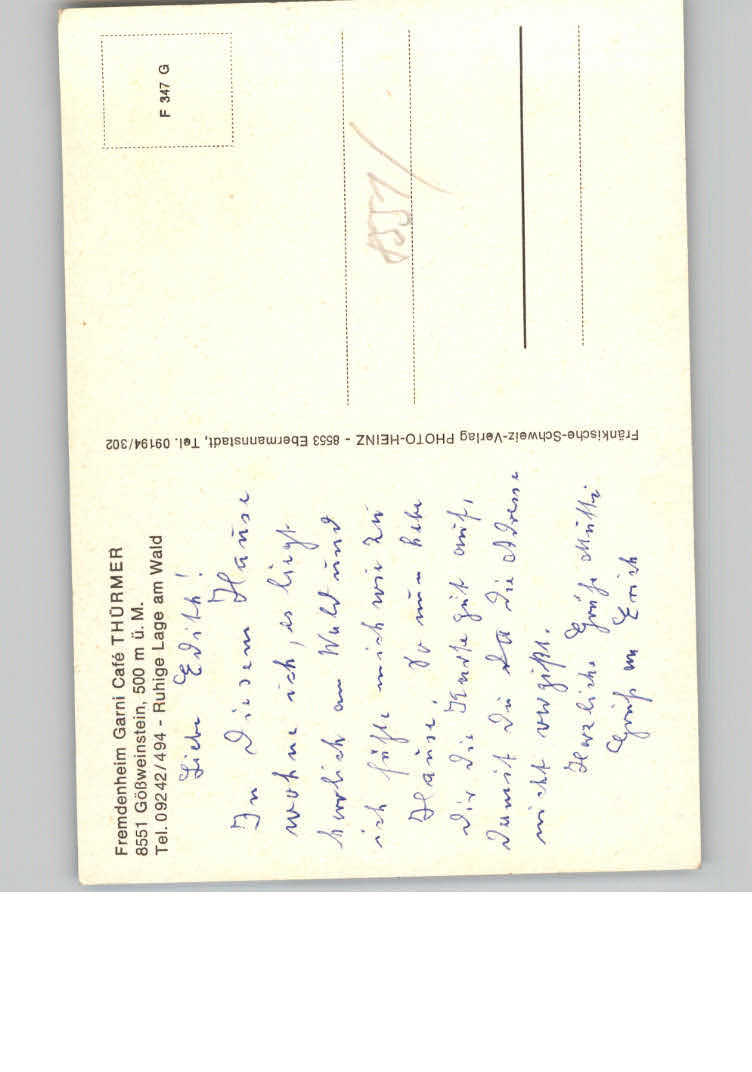 Fremdenheim Garni Café THÜRMER
8551 Gößweinstein, 500 m ü. M.
Tel. 09242/494 - Ruhige Lage am Wald
Liebe Edith!
In diesem Hause
wohne ich, es liegt
herrlich am Wald und
ich fühle mich wie zu
Hause. So nun hebe
dir die Karte gut auf,
damit du die Adresse
nicht vergißt.
Herzliche Grüße Mutti
Gruß an Erich
Fränkische-Schweiz-Verlag PHOTO-HEINZ - 8553 Ebermannstadt, Tel. 09194/302
F 347 G